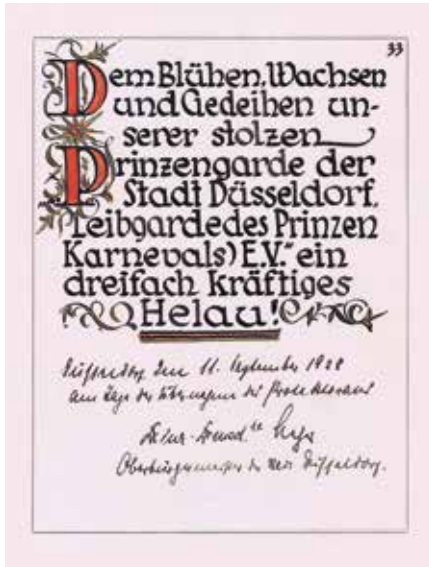 33
Dem Blühen, Wachsen
und Gedeihen un-
serer stolzen
Prinzengarde der
Stadt Düsseldorf,
Leibgarde des Prinzen
Karnevals) E.V." ein
dreifach kräftiges
Helau!
Düsseldorf den 11. September 1928
am Tage der Übernahme des Protektorats
Oberbürgermeister der Stadt Düsseldorf.